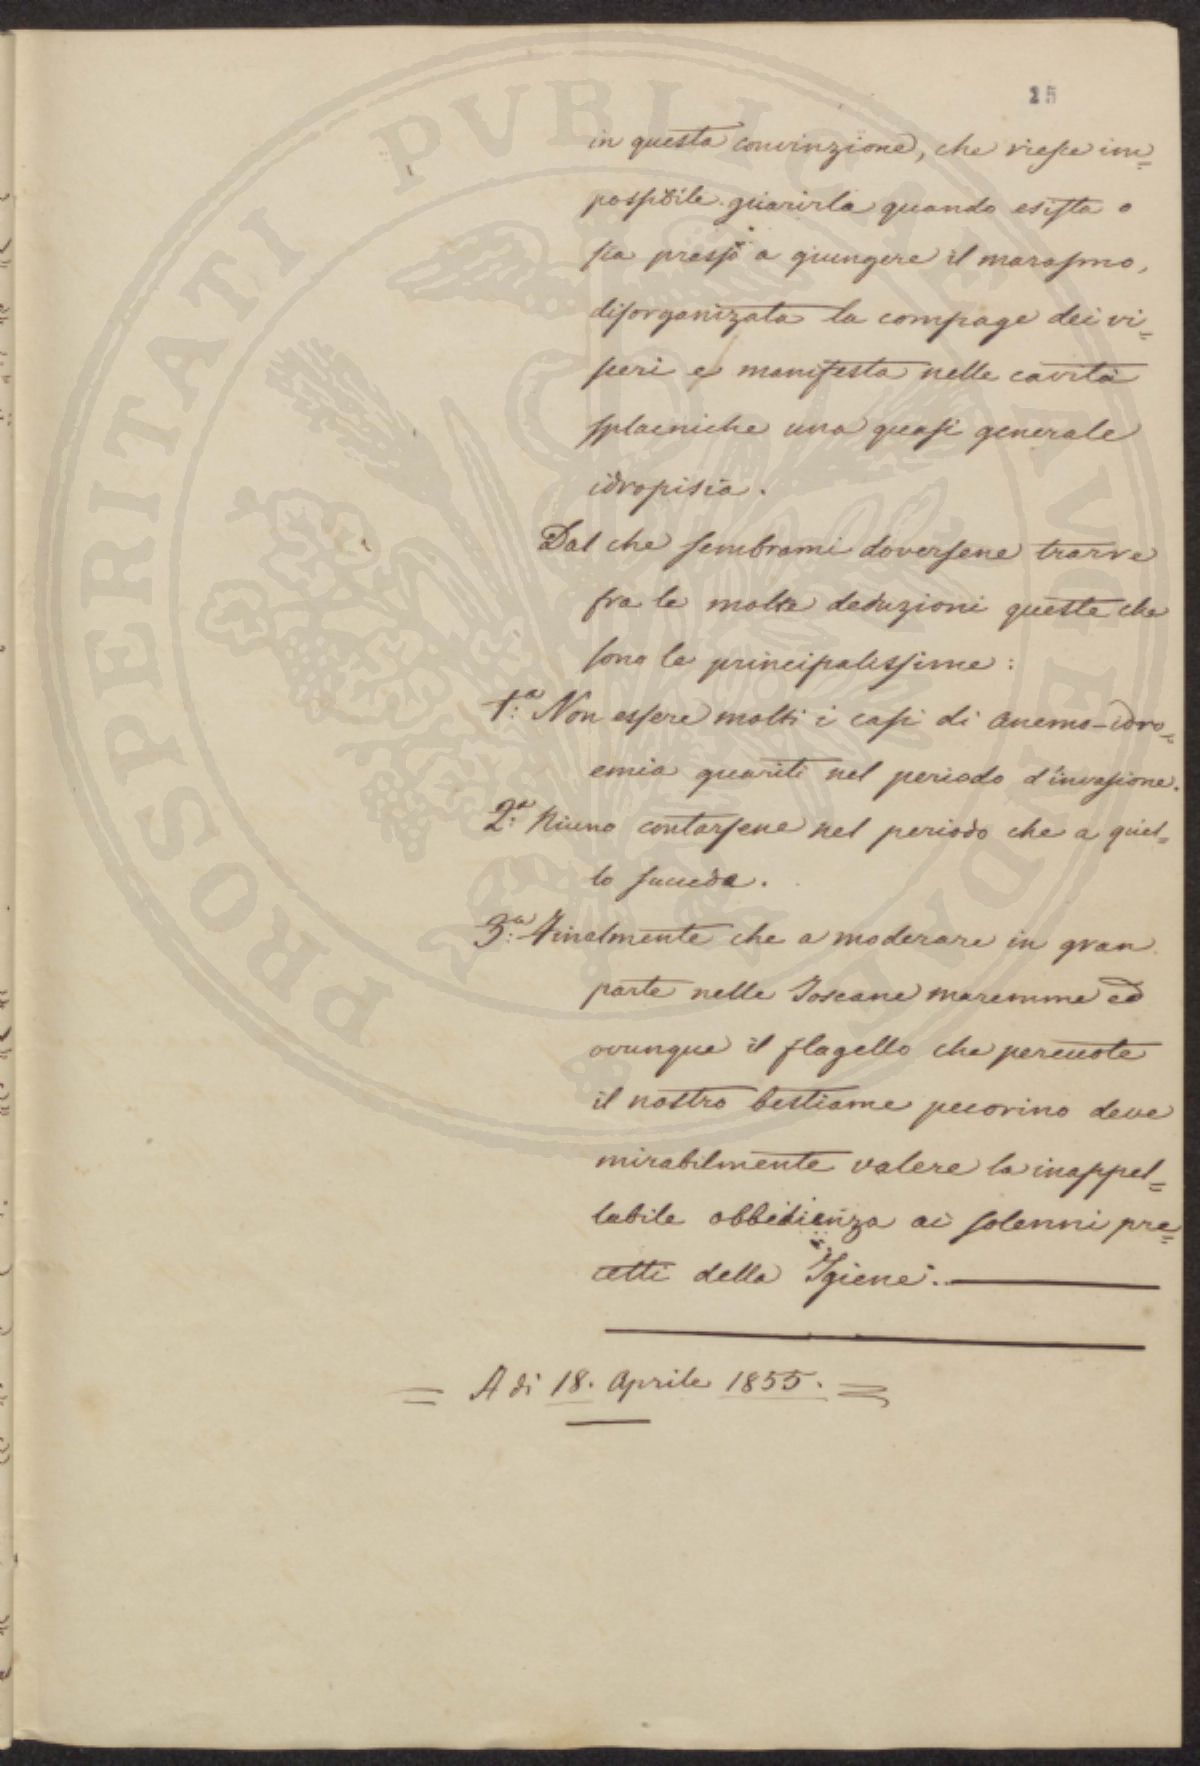 15
in questa convinzione, che riesce im=
possibile guarirla quando esista o
sia presso a giungere il marasmo,
disorganizzata la compage dei vi=
sceri e manifesta nelle cavità
splacniche una quasi generale
idropisia.
Dal che sembrami doversene trarre
fra le molte deduzioni queste che
sono le principalissime:
1.ª Non essere molti i casi di anemo-idro=
emia guariti nel periodo d'invasione.
2.ª Niuno contarsene nel periodo che a quel=
lo succede.
3.ª Finalmente che a moderare in gran
parte nelle Toscane maremme ed
ovunque il flagello che percuote
il nostro bestiame pecorino deve
mirabilmente valere la inappel=
labile obbedienza ai solenni pre=
cetti della Igiene.
= A dì 18. Aprile 1855. =
PROSPERITATI PVBLICAE AVGENDAE